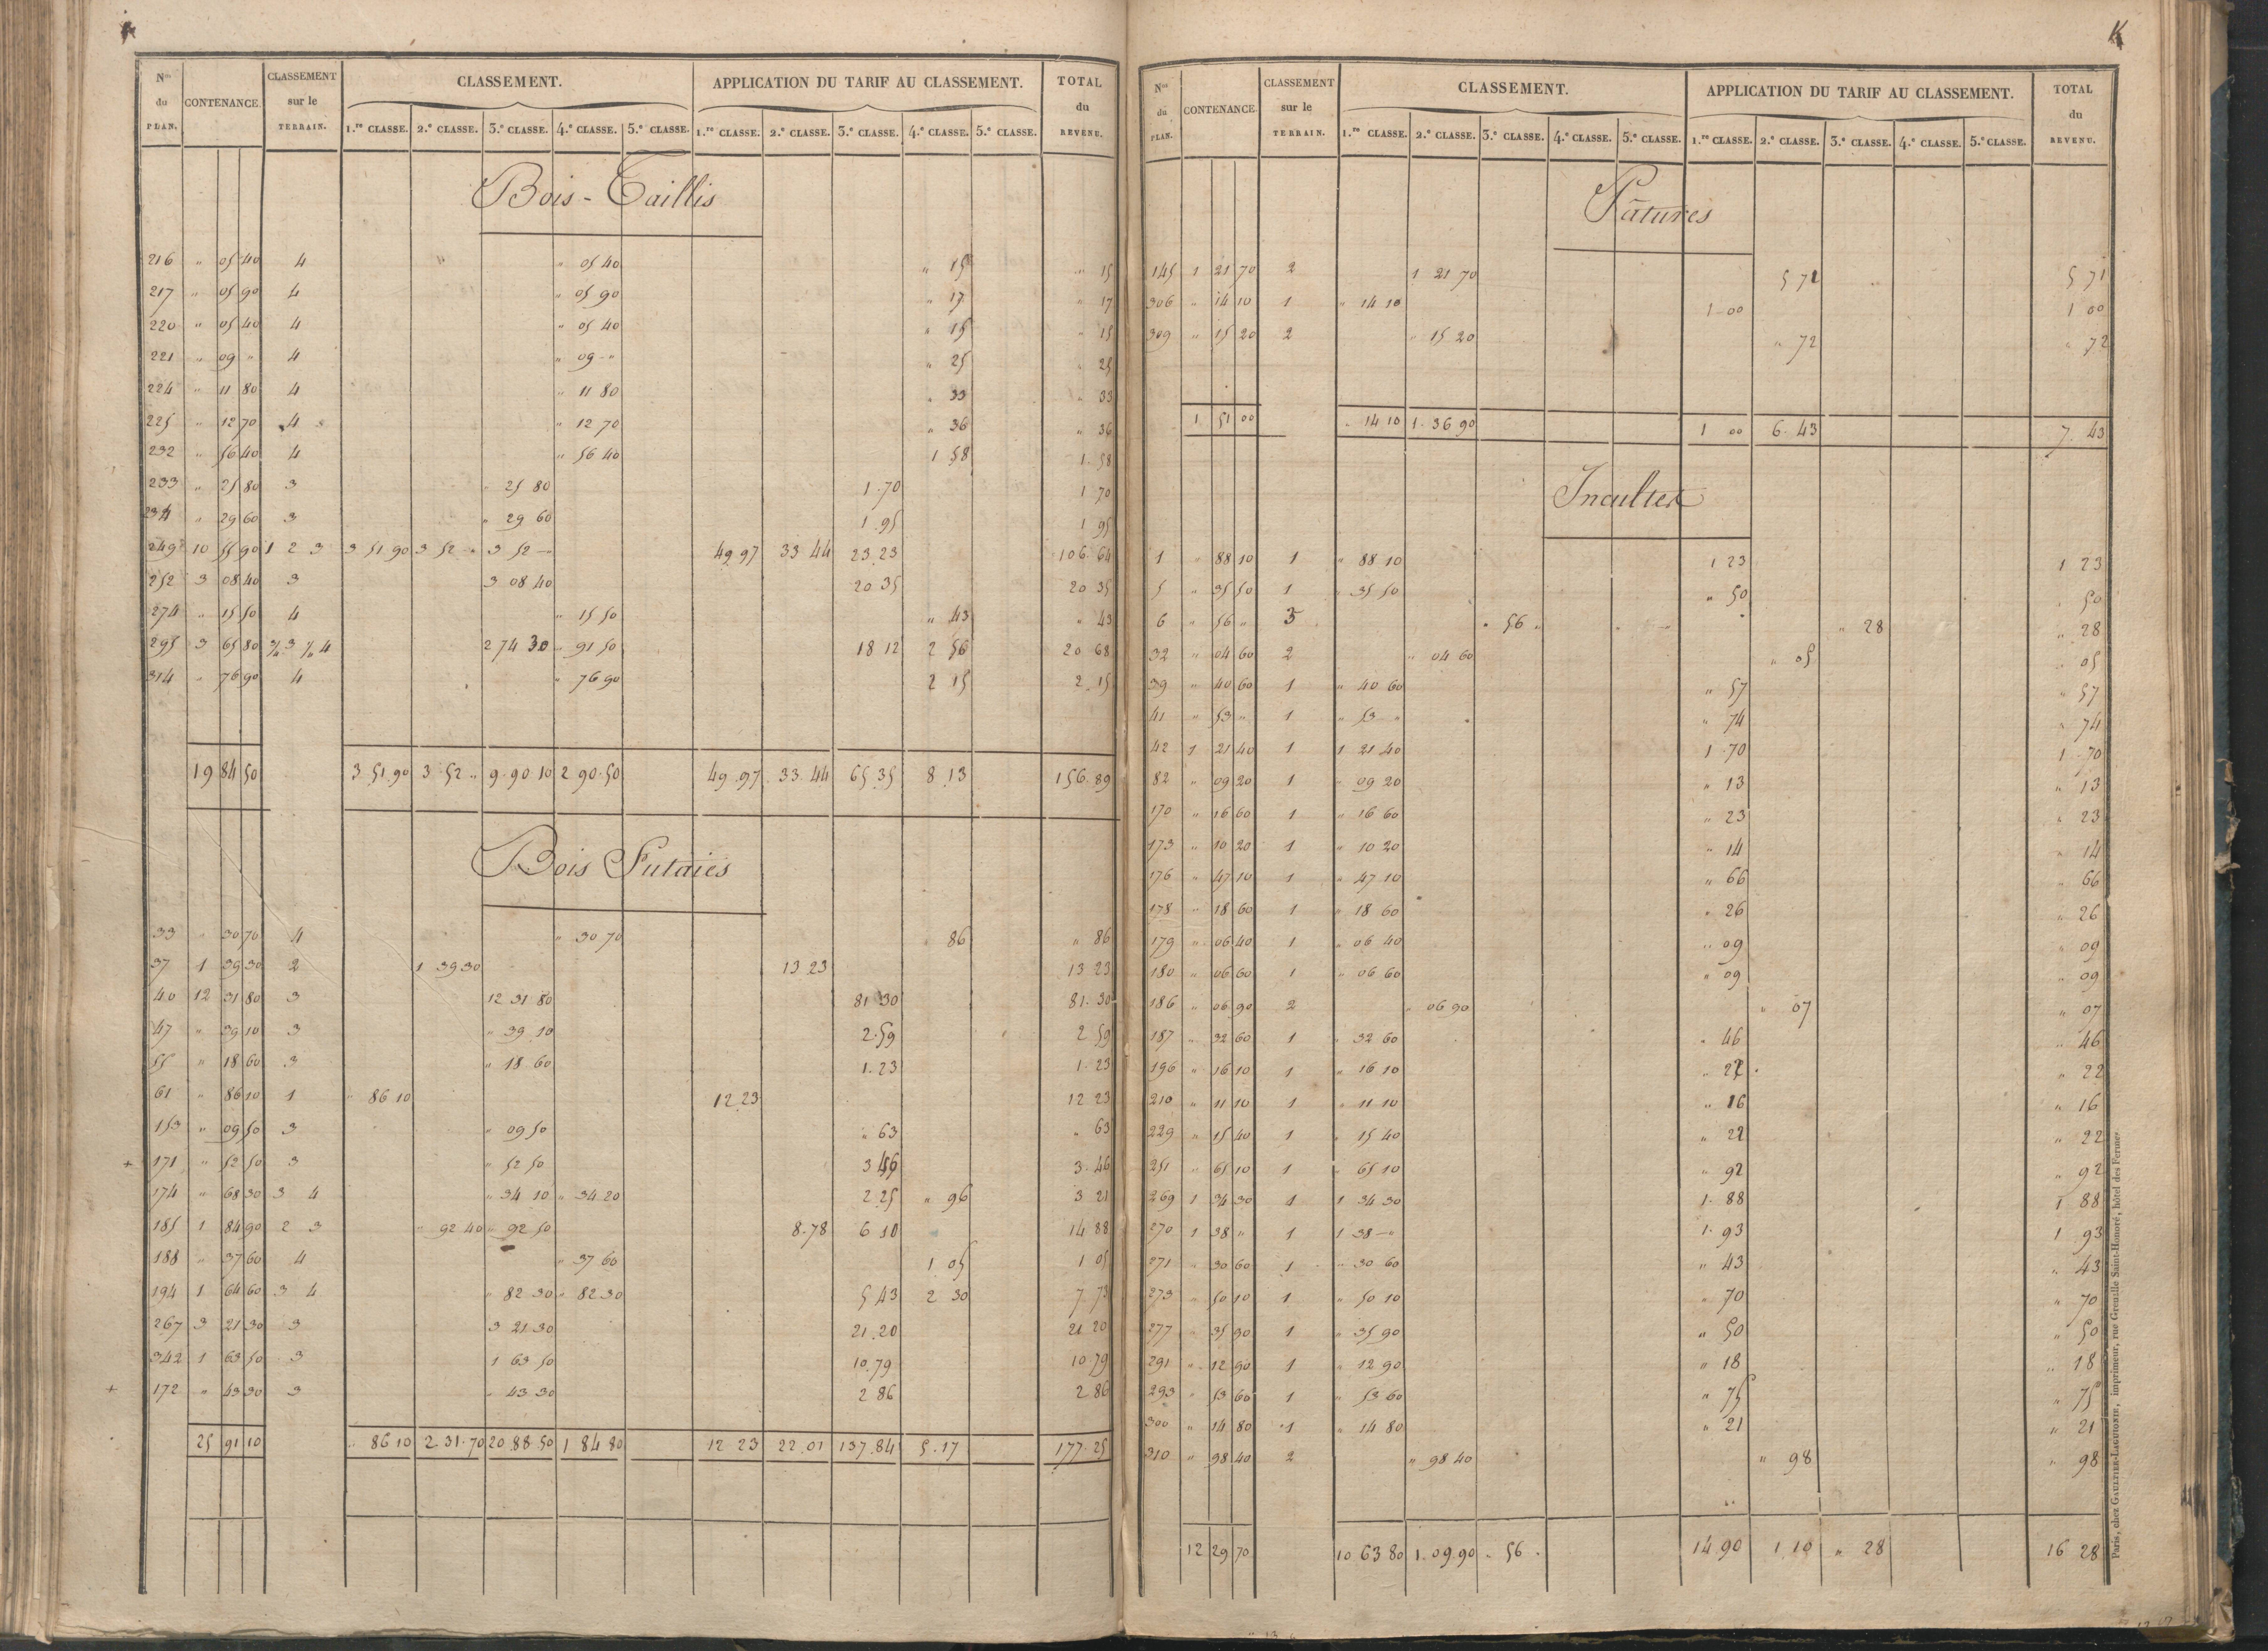 K
N.os du PLAN. CONTENANCE. CLASSEMENT sur le TERRAIN. CLASSEMENT. APPLICATION DU TARIF AU CLASSEMENT. TOTAL du REVENU.
1.re CLASSE. 2.e CLASSE. 3.e CLASSE. 4.e CLASSE. 5.e CLASSE. 1.re CLASSE. 2.e CLASSE. 3.e CLASSE. 4.e CLASSE. 5.e CLASSE.
Bois-Taillis
216 " 05 40 4 " 05 40 " 15 " 15
217 " 05 90 4 " 05 90 " 17 " 17
220 " 05 40 4 " 05 40 " 15 " 15
221 " 09 " 4 " 09 - " " 25 " 25
224 " 11 80 4 " 11 80 " 33 " 33
225 " 12 70 4 " 12 70 " 36 " 36
232 " 56 40 4 " 56 40 1 58 1.58
233 " 25 80 3 " 25 80 1.70 1 70
234 " 29 60 3 " 29 60 1.95 1 95
249 10 55 90 1 2 3 3 51 90 3 52 - " 3 52 - " 49 97 33 44 23.23 106 64
252 3 08 40 3 3 08 40 20 35 20 35
274 " 15 50 4 " 15 50 " 43 " 43
295 3 65 80 3 4 2 74 30 " 91 50 18 12 2 56 20 68
314 " 76 90 4 " 76 90 2 15 2.15
19 84 50 3 51.90 3 52 .. 9.90 10 2 90.50 49.97 33.44 65.35 8.13 156.89
Bois Futaies
33 " 30 70 4 " 30 70 " 86 " 86
37 1 39 30 2 1 39 30 13 23 13 23
40 12 31 80 3 12 31 80 81 30 81.30
47 " 39 10 3 " 39 10 2.59 2 59
55 " 18 60 3 " 18 60 1.23 1.23
61 " 86 10 1 " 86 10 12 23 12 23
153 " 09 50 3 " 09 50 " 63 " 63
+ 171 " 52 50 3 " 52 50 3 46 3.46
174 " 68 30 3 4 " 34 10 " 34 20 2 25 " 96 3 21
185 1 84 90 2 3 " 92 40 " 92 50 8.78 6 10 14 88
188 " 37 60 4 " 37 60 1 05 1 05
194 1 64 60 3 4 " 82 30 " 82 30 5 43 2 30 7 73
267 3 21 30 3 3 21 30 21.20 21 20
342 1 63 50 3 1 63 50 10.79 10 79
+ 172 " 43 30 3 " 43 30 2 86 2 86
25 91 10 " 86 10 2.31.70 20.88.50 1 84 80 12 23 22.01 137.84 5.17 177.25
K
N.os du PLAN. CONTENANCE. CLASSEMENT sur le TERRAIN. CLASSEMENT. APPLICATION DU TARIF AU CLASSEMENT. TOTAL du REVENU.
1.re CLASSE. 2.e CLASSE. 3.e CLASSE. 4.e CLASSE. 5.e CLASSE. 1.re CLASSE. 2.e CLASSE. 3.e CLASSE. 4.e CLASSE. 5.e CLASSE.
Pâtures
145 1 21 70 2 1 21 70 5 71 5 71
306 " 14 10 1 " 14 10 1-00 1 00
309 " 15 20 2 " 15 20 " 72 " 72
1 51 00 " 14 10 1.36 90 1 00 6.43 7.43
Incultes
1 " 88 10 1 " 88 10 1 23 1 23
5 " 35 50 1 " 35 50 " 50 " 50
6 " 56 " 3 " 56 " " 28 " 28
32 " 04 60 2 " 04 60 " 05 " 05
39 " 40 60 1 " 40 60 " 57 " 57
41 " 53 " 1 " 53 - " " 74 " 74
42 1 21 40 1 1 21 40 1.70 1.70
82 " 09 20 1 " 09 20 " 13 " 13
170 " 16 60 1 " 16 60 " 23 " 23
173 " 10 20 1 " 10 20 " 14 " 14
176 " 47 10 1 " 47 10 " 66 " 66
178 " 18 60 1 " 18 60 " 26 " 26
179 " 06 40 1 " 06 40 " 09 " 09
180 " 06 60 1 " 06 60 " 09 " 09
186 " 06 90 2 " 06 90 " 07 " 07
187 " 32 60 1 " 32 60 " 46 " 46
196 " 16 10 1 " 16 10 " 22 " 22
210 " 11 10 1 " 11 10 " 16 " 16
229 " 15 40 1 " 15 40 " 22 " 22
251 " 65 10 1 " 65 10 " 92 " 92
269 1 34 30 1 1 34 30 1.88 1 88
270 1 38 " 1 1 38 - " 1.93 1.93
271 " 30 60 1 " 30 60 " 43 " 43
273 " 50 10 1 " 50 10 " 70 " 70
277 " 35 90 1 " 35 90 " 50 " 50
291 " 12 90 1 " 12 90 " 18 " 18
293 " 53 60 1 " 53 60 " 75 " 75
300 " 14 80 1 " 14 80 " 21 " 21
310 " 98 40 2 " 98 40 " 98 " 98
12 29 70 10 63 80 1.09.90 " 56 . 14 90 1 10 " 28 16 28
Paris, chez GAULTIER-LAGUIONIE, imprimeur, rue Grenelle Saint-Honoré, hôtel des Fermes.